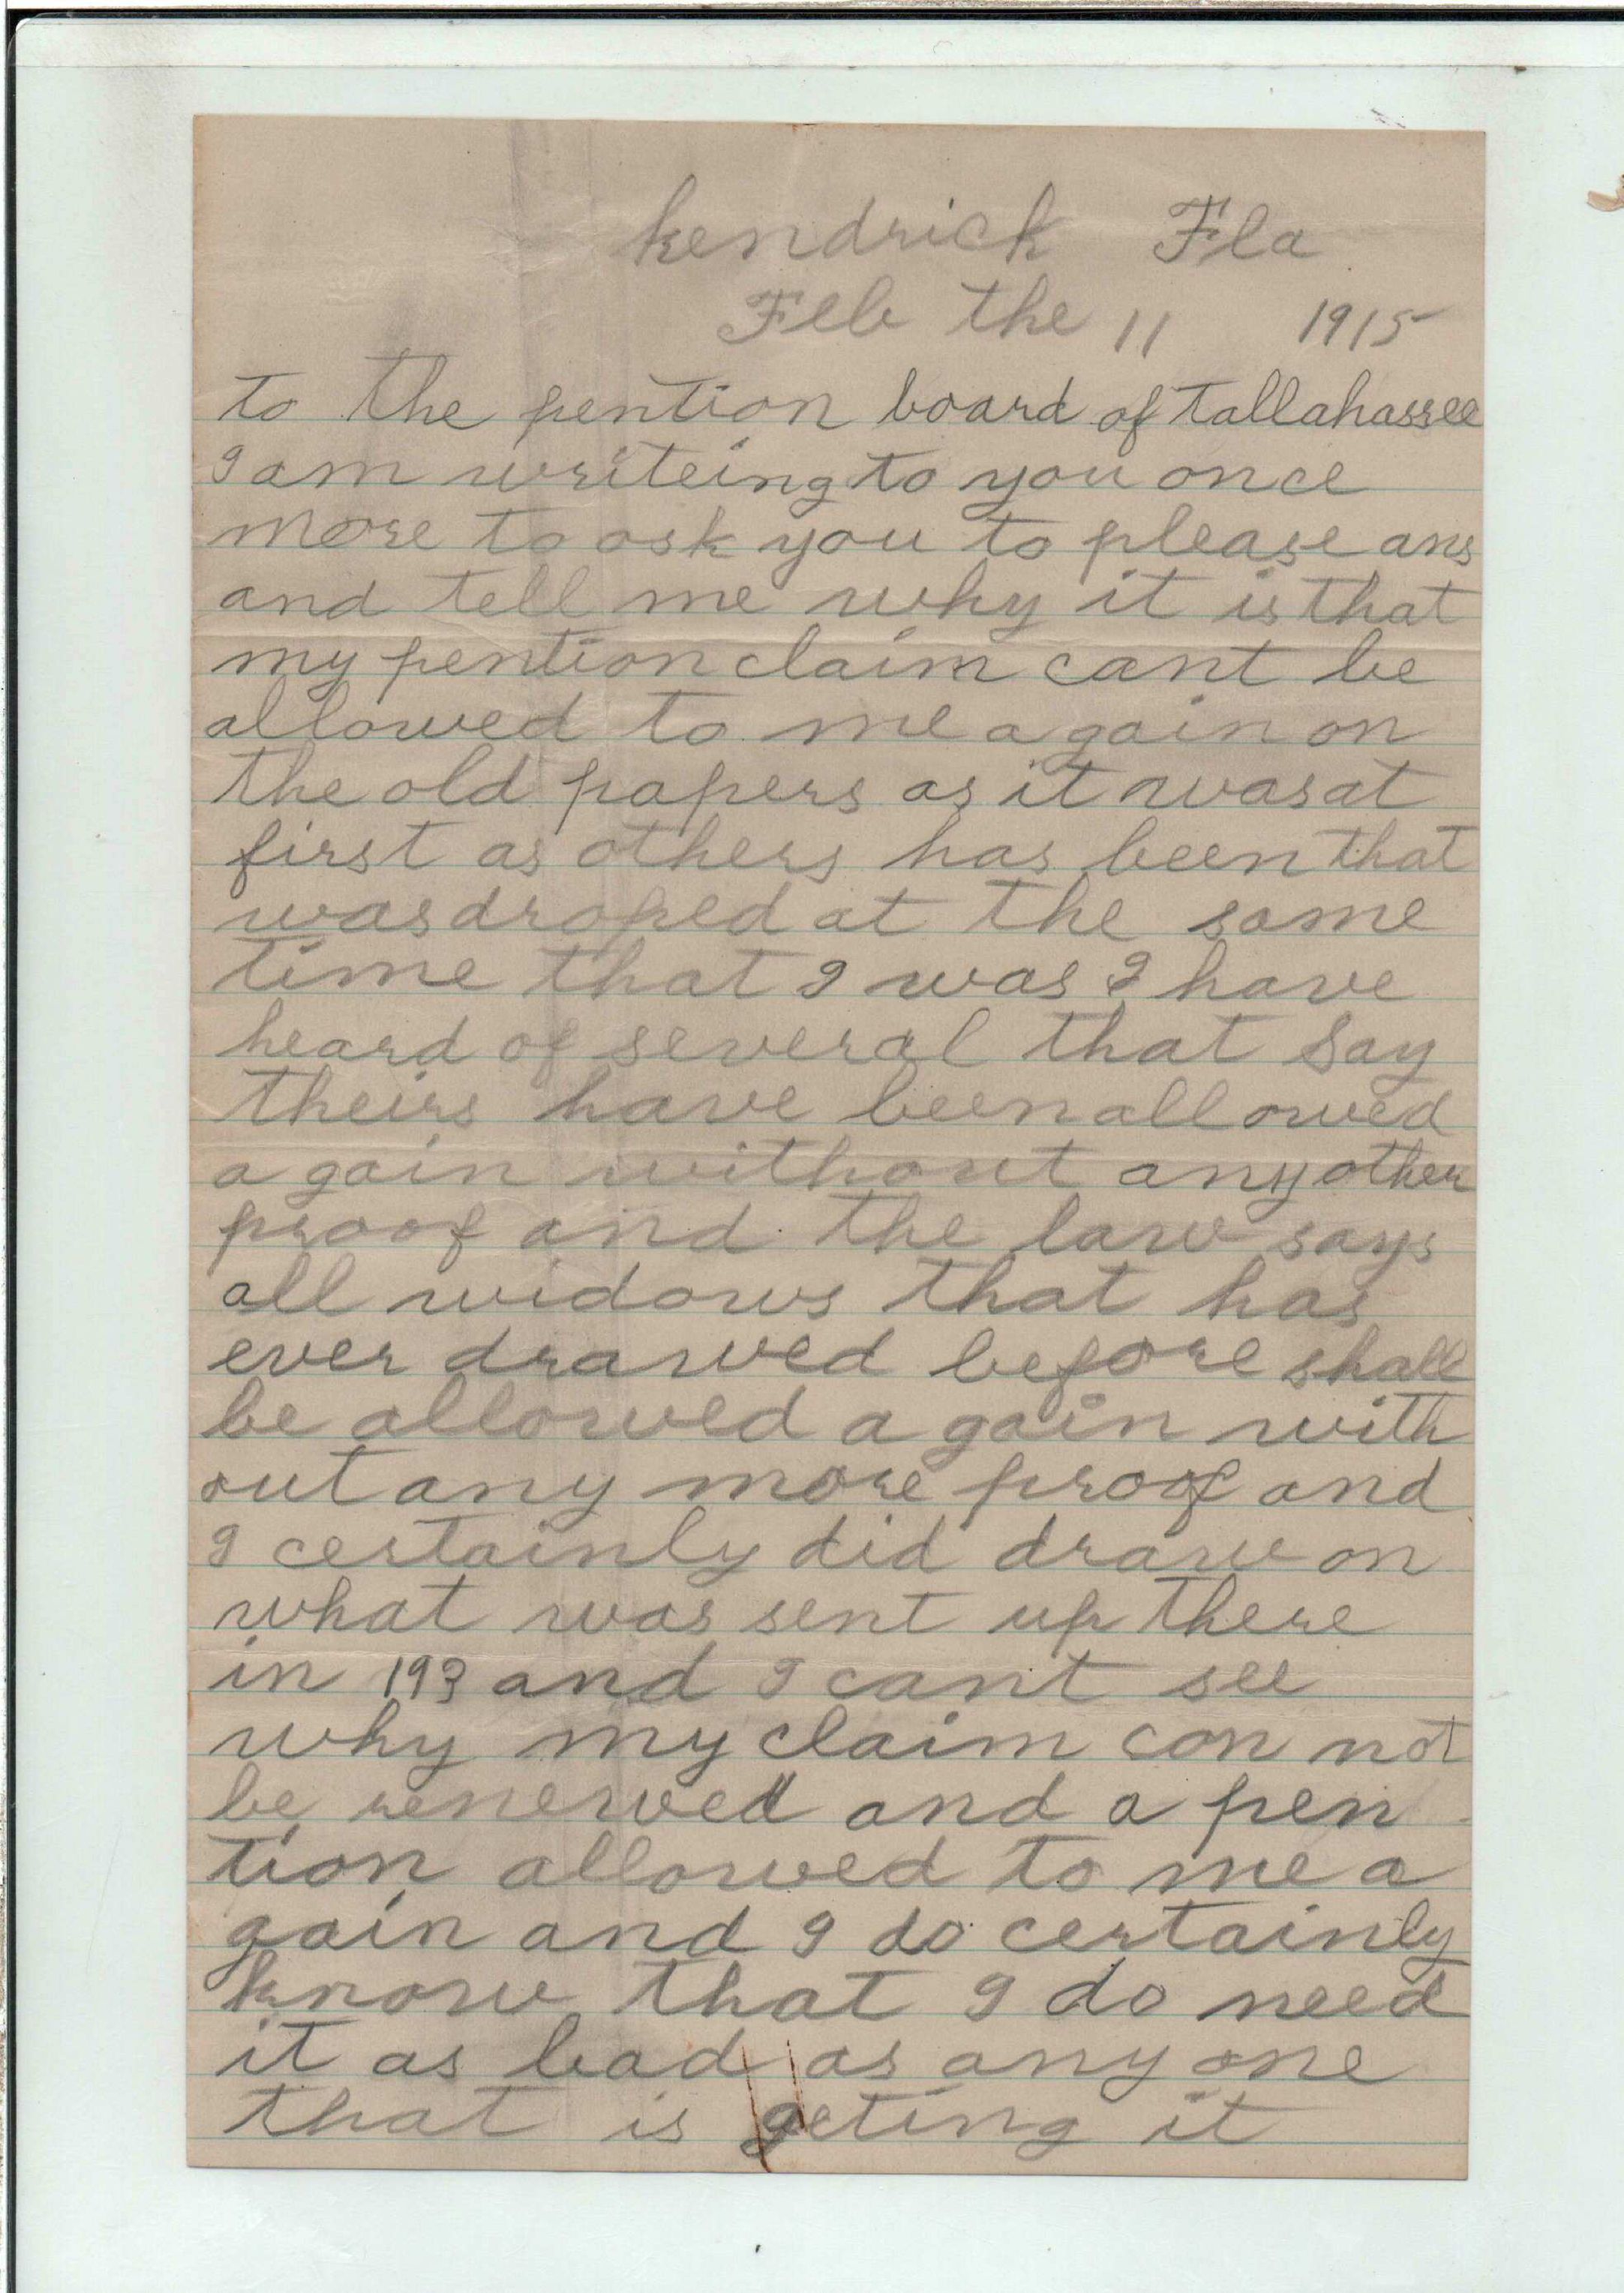 kendrick Fla
Feb the 11 1915
to the pention board of tallahassee
I am writeing to you once
more to ask you to please ans
and tell me why it is that
my pention claim cant be
allowed to me a gain on
the old papers as it was at
first as others has been that
was droped at the same
time that I was I have
heard of several that say
theirs have been allowed
a gain without any other
proof and the law says
all widows that has
ever drawed before shall
be allowed a gain with
out any more proof and
I certainly did draw on
what was sent up there
in 193 and I cant see
why my claim can not
be renewed and a pen
tion allowed to me a
gain and I do certainly
know that I do need
it as bad as any one
that is geting it